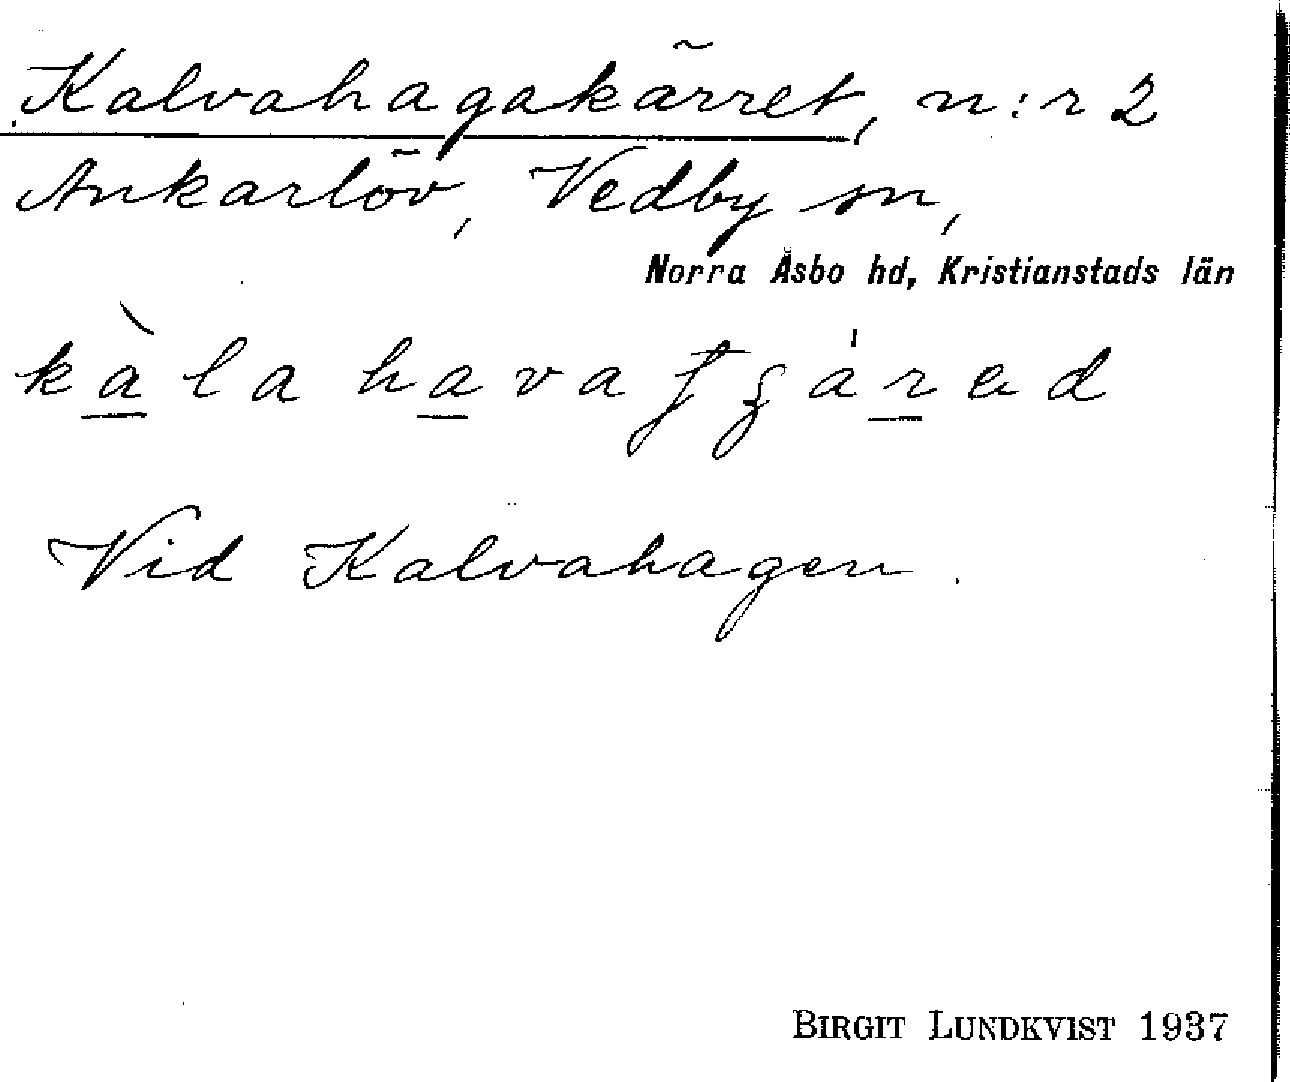 Kalvahagakärret, n:r 2
Ankarlöv, Vedby sn,
Norra Åsbo hd, Kristianstads län
Vid Kalvahagen.
BIRGIT LUNDKVIST 1937